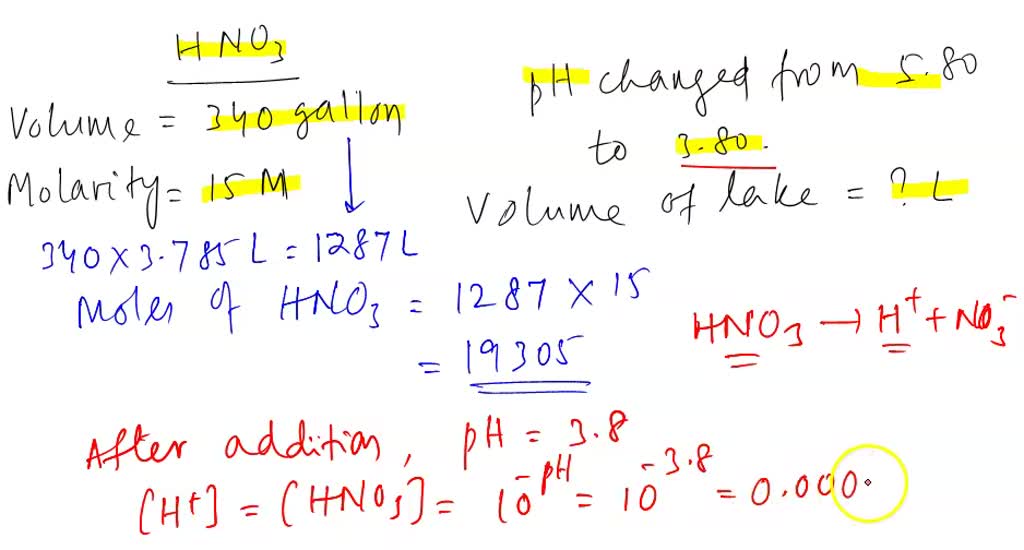 HNO3
Volume = 340 gallon
Molarity = 15 M
pH changed from 5.80
to 3.80.
Volume of lake = ? L
340 × 3.785 L = 1287 L
Moles of HNO3 = 1287 × 15
= 19305
HNO3 → H+ + NO3-
After addition, pH = 3.8
[H+] = [HNO3] = 10^-pH = 10^-3.8 = 0.000